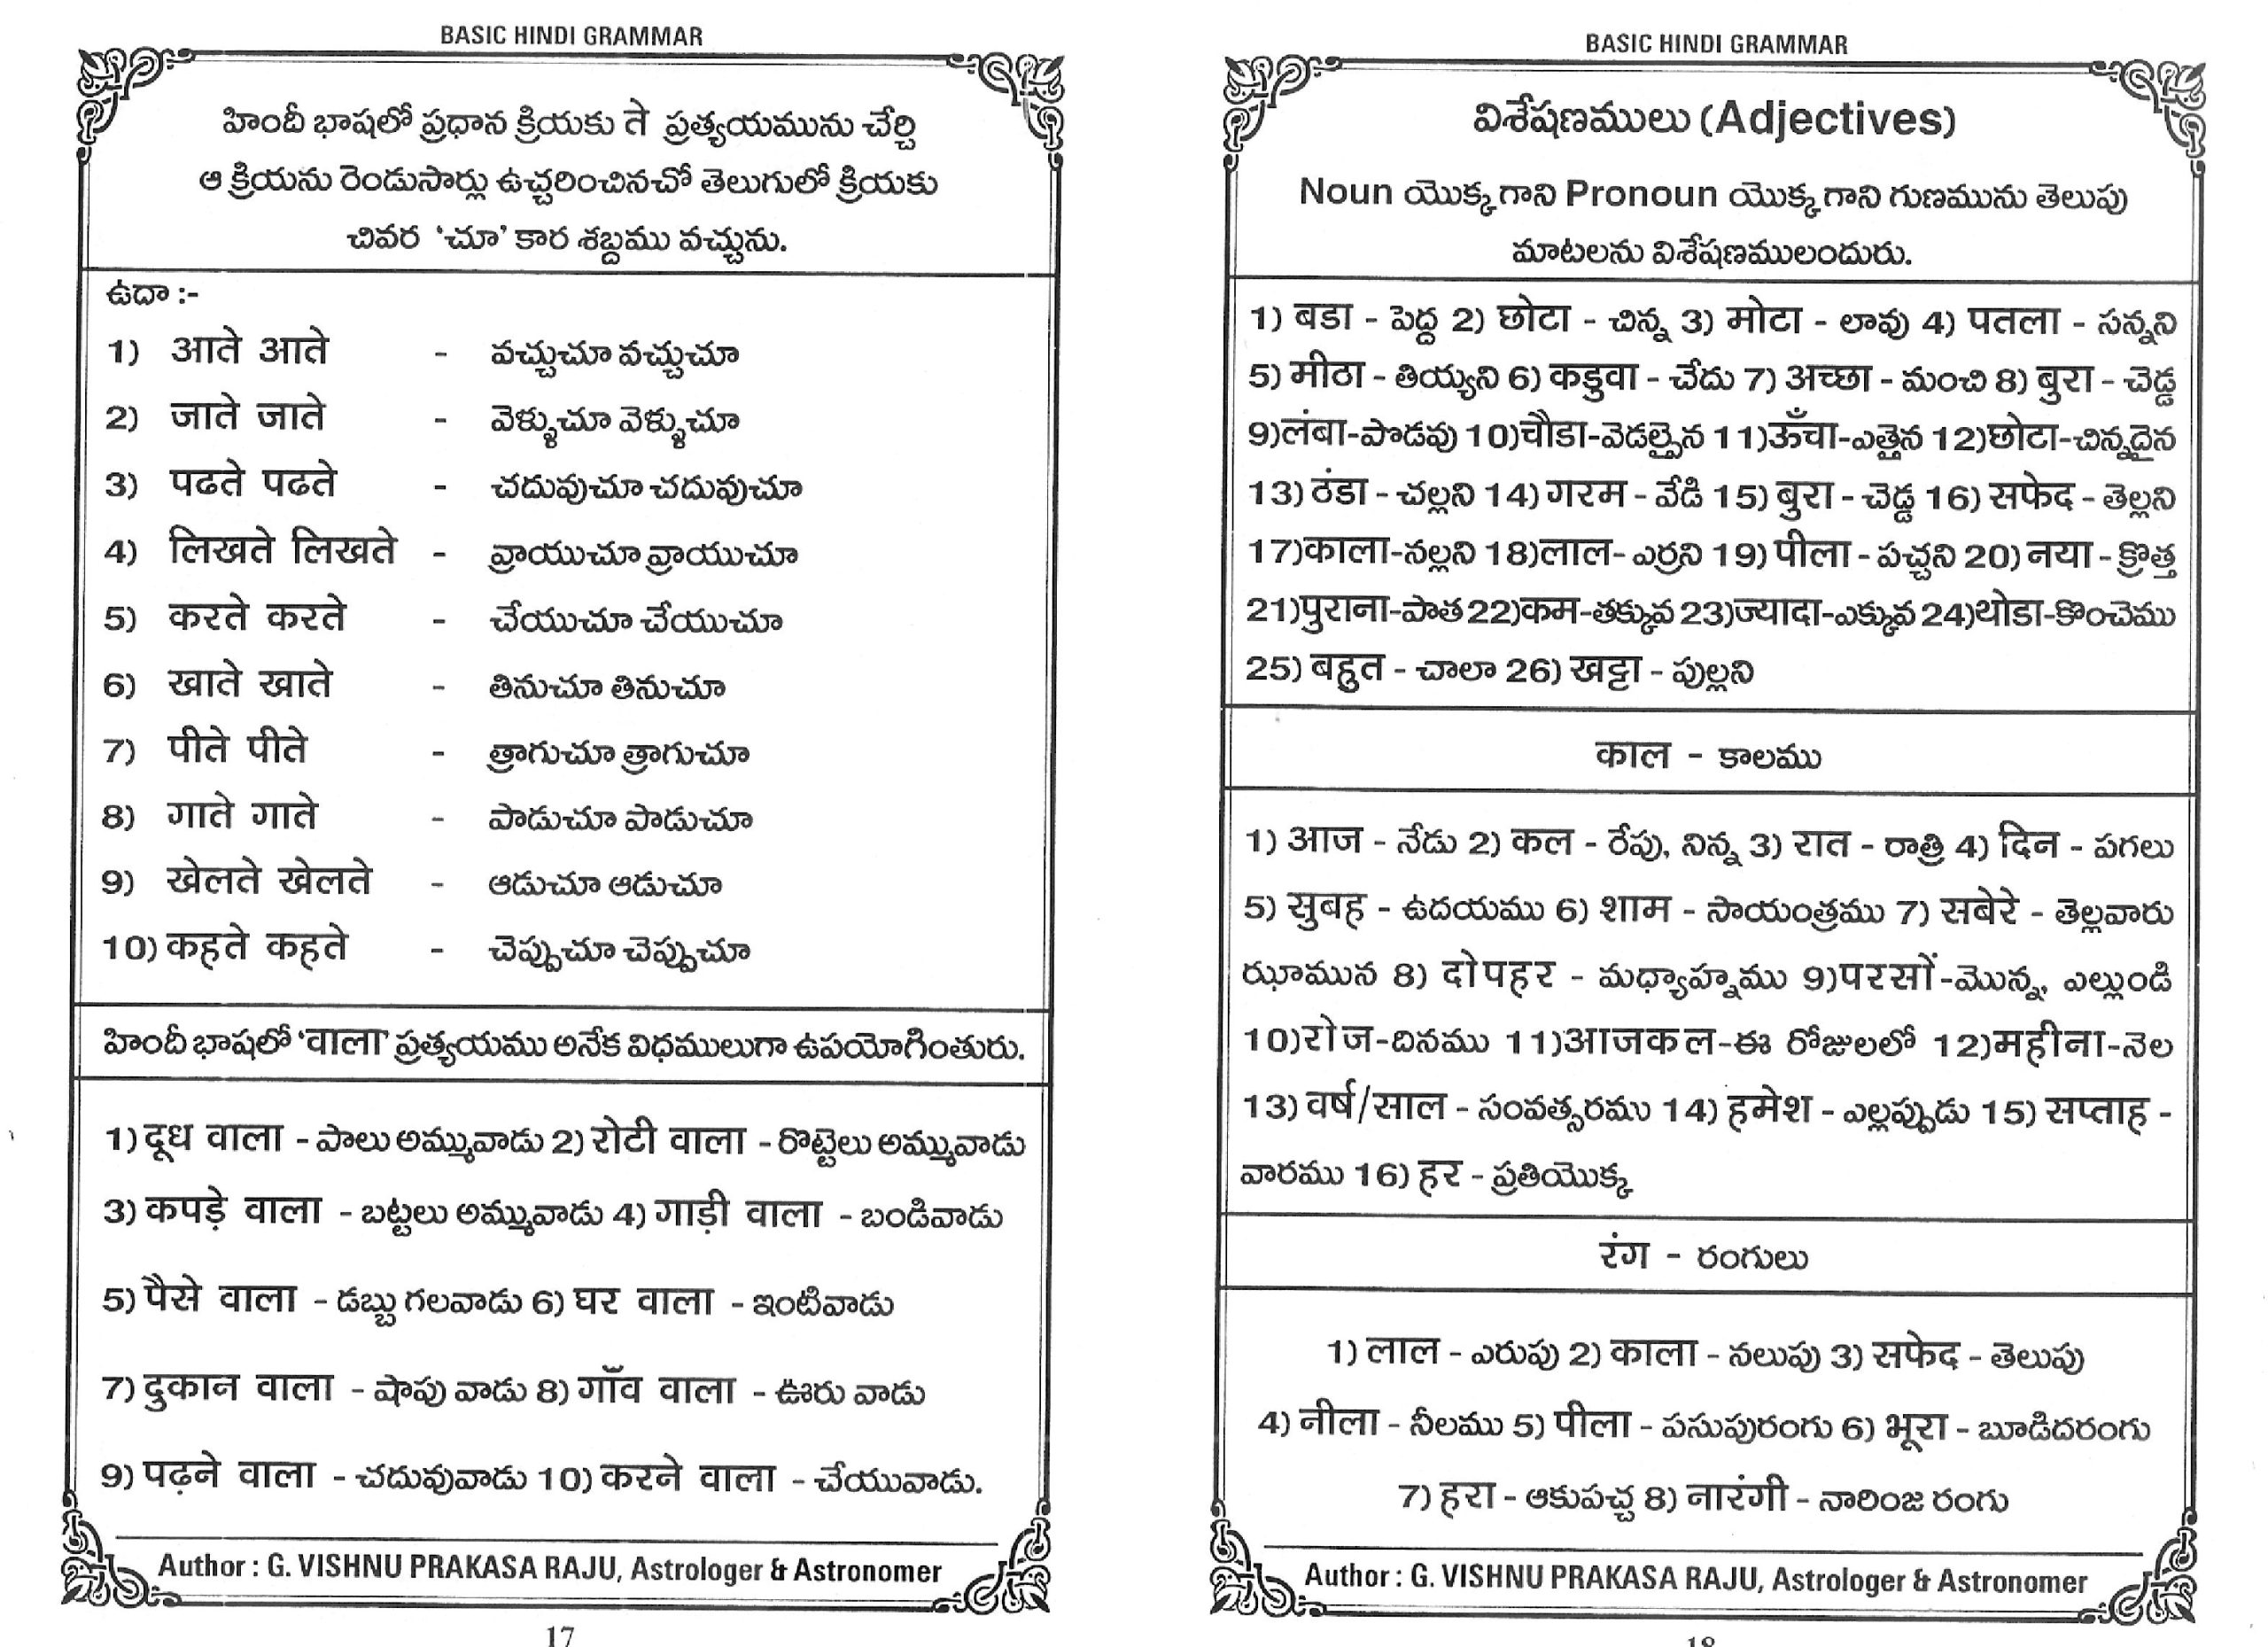 BASIC HINDI GRAMMAR
హిందీ భాషలో ప్రధాన క్రియకు ते ప్రత్యయమును చేర్చి
ఆ క్రియను రెండుసార్లు ఉచ్చరించినచో తెలుగులో క్రియకు
చివర ‘చూ’ కార శబ్దము వచ్చును.
ఉదా :-
1) आते आते - వచ్చుచూ వచ్చుచూ
2) जाते जाते - వెళ్ళుచూ వెళ్ళుచూ
3) पढते पढते - చదువుచూ చదువుచూ
4) लिखते लिखते - వ్రాయుచూ వ్రాయుచూ
5) करते करते - చేయుచూ చేయుచూ
6) खाते खाते - తినుచూ తినుచూ
7) पीते पीते - త్రాగుచూ త్రాగుచూ
8) गाते गाते - పాడుచూ పాడుచూ
9) खेलते खेलते - ఆడుచూ ఆడుచూ
10) कहते कहते - చెప్పుచూ చెప్పుచూ
హిందీ భాషలో ‘वाला’ ప్రత్యయము అనేక విధములుగా ఉపయోగింతురు.
1) दूध वाला - పాలు అమ్మువాడు 2) रोटी वाला - రొట్టెలు అమ్మువాడు
3) कपड़े वाला - బట్టలు అమ్మువాడు 4) गाड़ी वाला - బండివాడు
5) पैसे वाला - డబ్బు గలవాడు 6) घर वाला - ఇంటివాడు
7) दुकान वाला - షాపు వాడు 8) गाँव वाला - ఊరు వాడు
9) पढ़ने वाला - చదువువాడు 10) करने वाला - చేయువాడు.
Author : G. VISHNU PRAKASA RAJU, Astrologer & Astronomer
17
BASIC HINDI GRAMMAR
విశేషణములు (Adjectives)
Noun యొక్క గాని Pronoun యొక్క గాని గుణమును తెలుపు
మాటలను విశేషణములందురు.
1) बडा - పెద్ద 2) छोटा - చిన్న 3) मोटा - లావు 4) पतला - సన్నని
5) मीठा - తియ్యని 6) कडुवा - చేదు 7) अच्छा - మంచి 8) बुरा - చెడ్డ
9)लंबा-పొడవు 10)चौडा-వెడల్పైన 11)ऊँचा-ఎత్తైన 12)छोटा-చిన్నదైన
13) ठंडा - చల్లని 14) गरम - వేడి 15) बुरा - చెడ్డ 16) सफेद - తెల్లని
17)काला-నల్లని 18)लाल- ఎర్రని 19) पीला - పచ్చని 20) नया - క్రొత్త
21)पुराना-పాత 22)कम-తక్కువ 23)ज्यादा-ఎక్కువ 24)थोडा-కొంచెము
25) बहुत - చాలా 26) खट्टा - పుల్లని
काल - కాలము
1) आज - నేడు 2) कल - రేపు, నిన్న 3) रात - రాత్రి 4) दिन - పగలు
5) सुबह - ఉదయము 6) शाम - సాయంత్రము 7) सबेरे - తెల్లవారు
ఝామున 8) दोपहर - మధ్యాహ్నము 9)परसों-మొన్న, ఎల్లుండి
10)रोज-దినము 11)आजकल-ఈ రోజులలో 12)महीना-నెల
13) वर्ष/साल - సంవత్సరము 14) हमेश - ఎల్లప్పుడు 15) सप्ताह -
వారము 16) हर - ప్రతియొక్క
रंग - రంగులు
1) लाल - ఎరుపు 2) काला - నలుపు 3) सफेद - తెలుపు
4) नीला - నీలము 5) पीला - పసుపురంగు 6) भूरा - బూడిదరంగు
7) हरा - ఆకుపచ్చ 8) नारंगी - నారింజ రంగు
Author : G. VISHNU PRAKASA RAJU, Astrologer & Astronomer
18